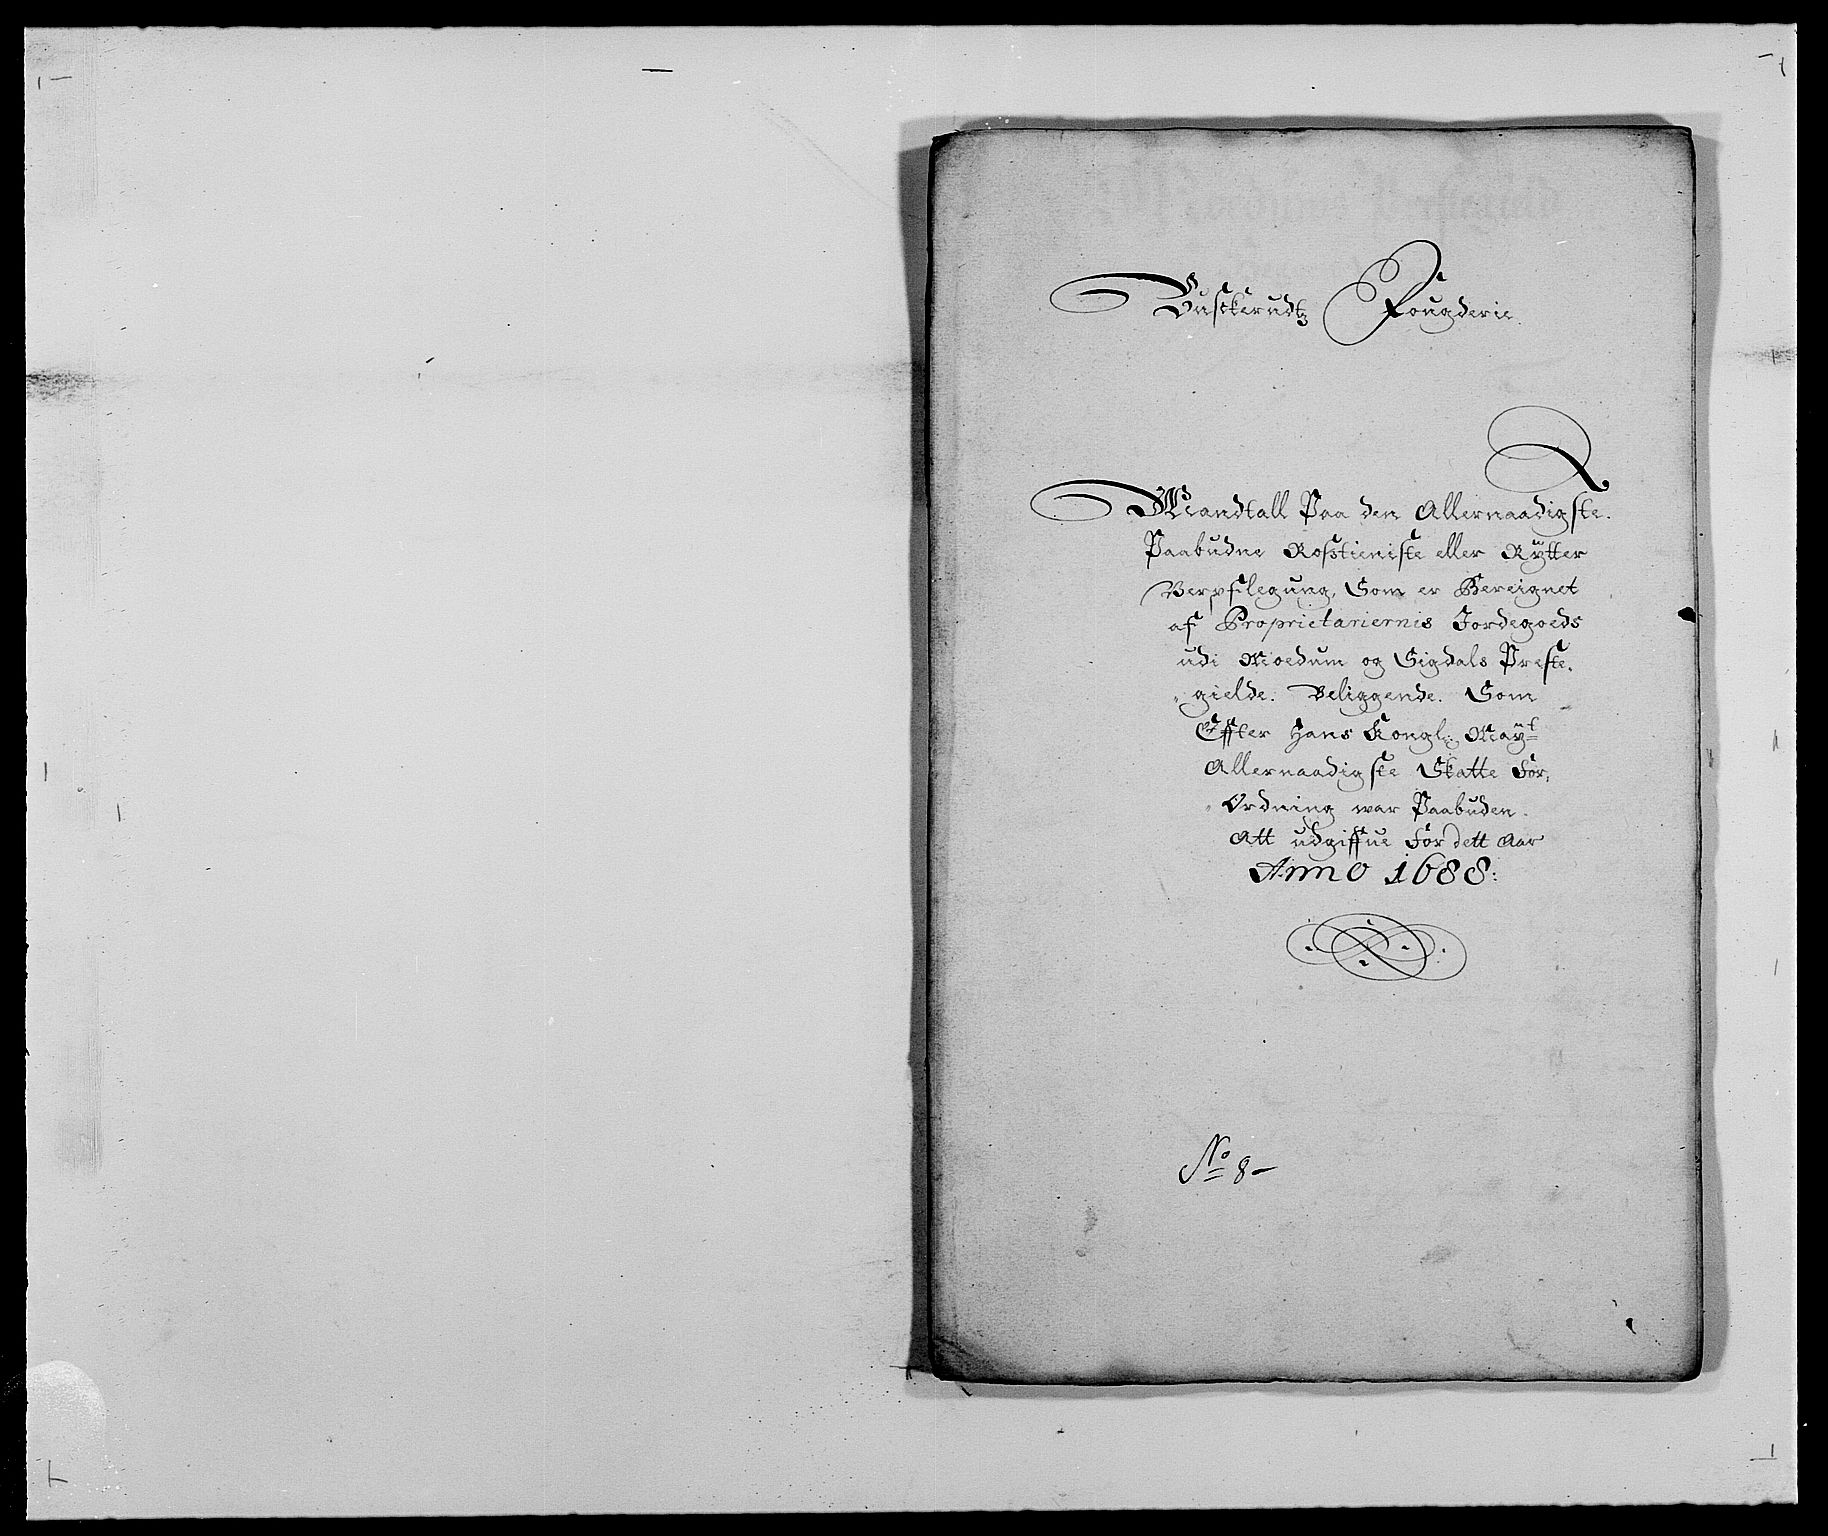 Buskerudtz Fougderie.
Mandtall Paa den Allernaadigste.
Paabudne Rosstieniste eller Rÿtter
Verpflegung, Som er Bereignet
af Proprietariernis Jordegoeds
udi Moedum og Sigdals Preste,
gielde. Beliggende. Som
Effter Hans Kongl: Maÿt
Allernaadigste Skatte For,
Ordning war Paabuden.
Att udgiffue For dett Aar
Anno 1688:
No 8-